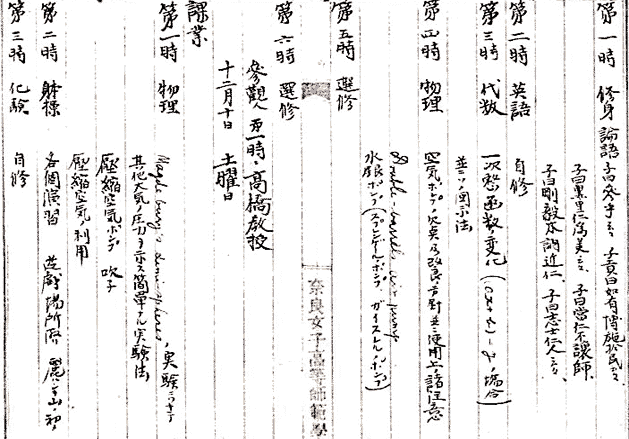 第一時 修身 論語 子曰參乎云々 子貢曰如有博施於民云々
子曰里仁為美云々 子曰當仁不讓師
子曰剛毅木訥近仁 子曰志士仁人云々
第二時 英語 自修
第三時 代数 一次整函数ノ変化
並ニソノ図示法
第四時 物理 空気ポンプノ欠点及改良ノ方針並ニ使用上ノ諸注意
水銀ポンプ(スプレンゲルポンプ ガイスレルポンプ)
第五時 選修
第六時 選修
參觀 第一時、高橋教授
十二月十日 土曜日
課業
第一時 物理 実験
其他大気ノ圧力ヲ示ス簡単ナル実験法
壓縮空気ポンプ 吹子
壓縮空気ノ利用
第二時 体操 各個演習
第三時 化験 自修
奈良女子高等師範學